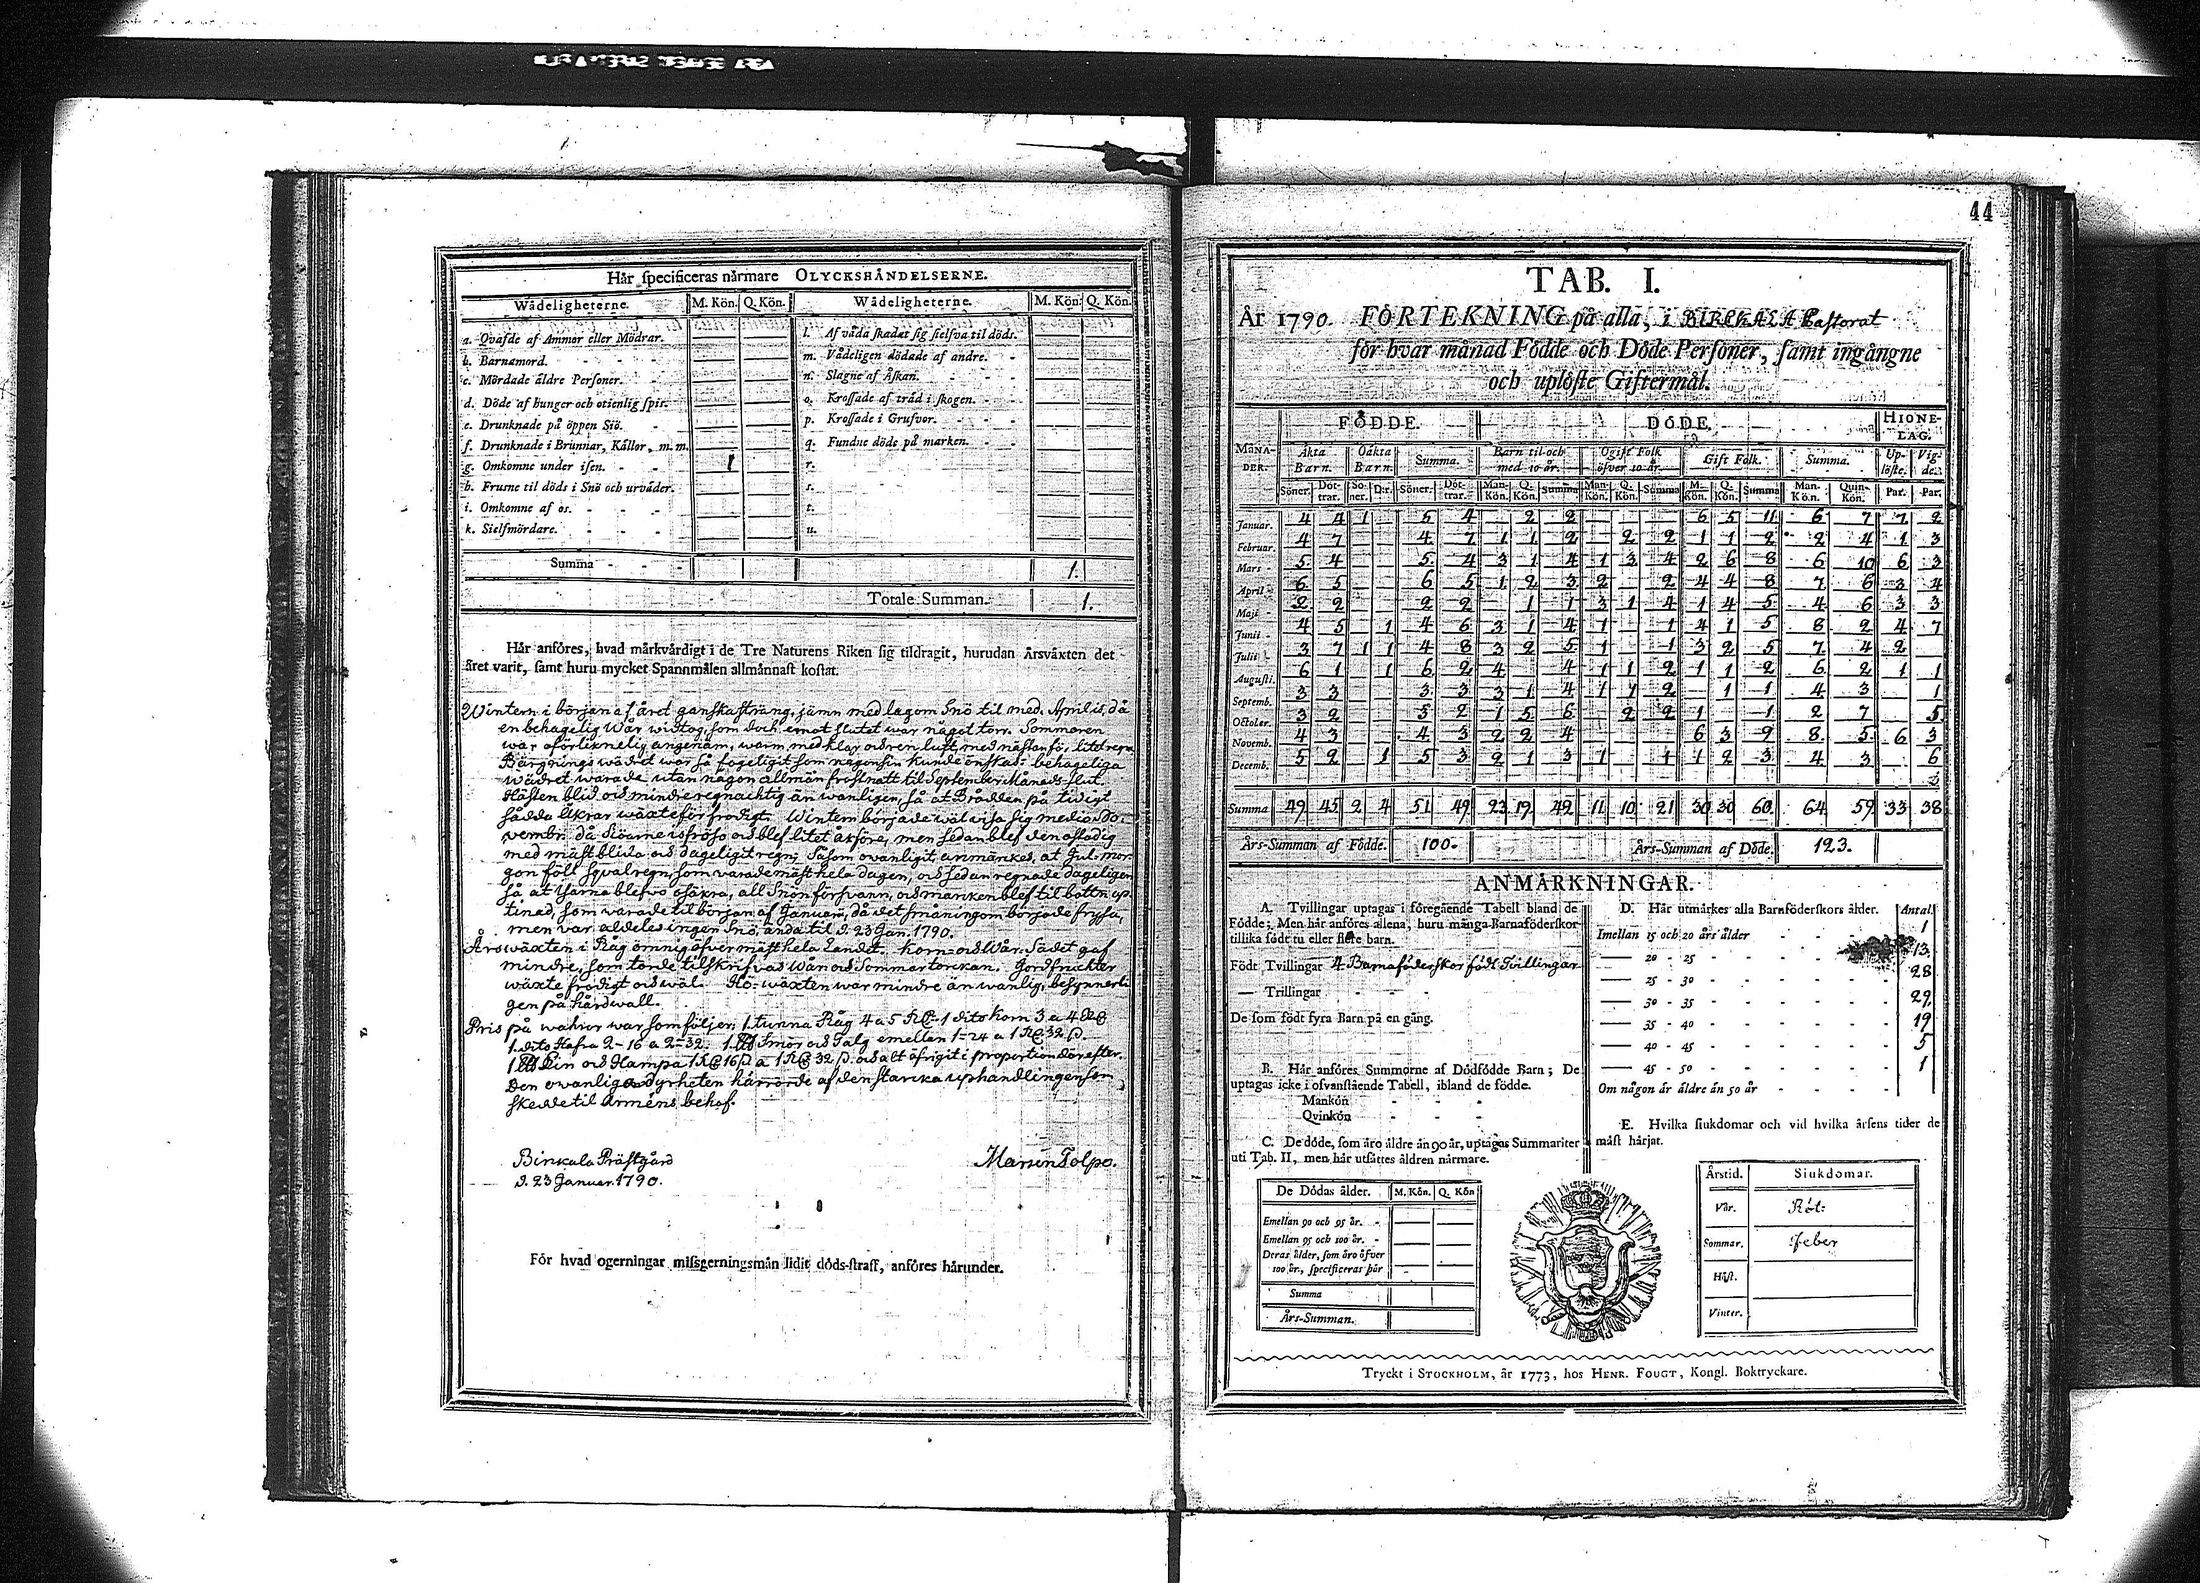 Hår specificeras nårmare OLYCKSHÅNDELSERNE.
Wådeligheterne. M. Kön. Q. Kön. Wådeligheterne. M. Kön. Q. Kön.
a. Qvafde af Ammor eller Mödrar.
b. Barnamord.
c. Mördade åldre Personer.
d. Döde af hunger och otienlig spis.
e. Drunknade på öppen Siö.
f. Drunknade i Brunnar, Kållor, m. m.
g. Omkomne under isen. 1
h. Frusne til döds i Snö och urvåder.
i. Omkomne af os.
k. Sielfmördare.
l. Af våda skadat sig sielfva til döds.
m. Vådeligen dödade af andre.
n. Slagne af Åskan.
o. Krossade af tråd i skogen.
p. Krossade i Grufvor.
q. Fundne döde på marken.
r.
s.
t.
u.
Summa 1.
Totale Summan. 1.
Hår anföres, hvad mårkvårdigt i de Tre Naturens Riken sig tildragit, hurudan Årsvåxten det
året varit, samt huru mycket Spannmålen allmånnast kostat.
Wintern i början af året ganska sträng, jämn med lagom Snö til med. Aprilis, då
en behagelig Wår widtog, som doch emot slutet war något torr. Sommaren
war oförliknelig angenäm, warm med klar och ren luft, med nästan för litet regn
Bärgnings wädret war så fogeligit som någonsin kunde önskas: behageliga
wädret warade utan någon allmän frostnatt til September Månads slut.
Hösten blid och mindre regnachtig än wanligen, så at Brådden på tidigt
sådda åkrar wäxte för frodigt. Wintern började wäl wisa sig medio No-
vembr. då Siöarne isfröso och blef litet åkföre, men sedan blef den ostadig
med mäst blida och dageligit regn; Såsom owanligit anmärkes, at Jul-mor-
gon föll sqvalregn, som warade mäst hela dagen, och sedan regnade dageligen
så at Isarna blefvo osäkra, all Snön försvann, och marken blef til bottn up-
tinad, som warade til början af Januari, då det småningom började frysa,
men var aldeles ingen Snö, ända til d. 23 Jan. 1790.
Årswäxten i Råg ömnig öfver mäst hela Landet. Korn och Wår-Sädet gaf
mindre, som torde tilskrifvas Wår och Sommar torckan. Jordfruckter
wäxte frodigt och wäl. Hö-wäxten war mindre än wanlig, besynnerli-
gen på hårdwall.
Pris på wahror war som följer: 1. tunna Råg 4 a 5 R 1 dito Korn 3 a 4
1. dito Hafra 2-16 a 2-32. Smör och Talg emellan 1-24 a 1 32
Lin och Hampa 1 16 a 1 32 och alt öfrigit i proportion därefter.
Den owanliga dyrheten härrörde af den starcka uphandlingen som
skedde til Arméns behof.
Birkala Prästgård
d. 23 Januar. 1790.
För hvad ogerningar missgerningsmån lidit döds-straff, anföres hårunder.
44
TAB. I.
År 1790. FÖRTEKNING på alla, i BIRCKALA Pastorat
för hvar månad Födde och Döde Personer, samt ingångne
och uplöste Giftermål.
MÅNADER. FÖDDE. DÖDE. HIONELAG.
Åkta Barn. Oåkta Barn. Summa. Barn til och med 10 år. Ogift Folk öfver 10 år. Gift Folk. Summa. Uplöste. Vigde.
Söner. Döttrar. Söner. D:r. Söner. Döttrar. Man-Kön. Q. Kön. Summa Man-Kön. Q. Kön. Summa M. Kön. Q. Kön. Summa Man-Kön. Quin-Kön. Par. Par.
Januar. 4 4 1 5 4 2 2 6 5 11 6 7 7 2
Februar. 4 7 4 7 1 1 2 2 2 1 1 2 2 4 1 3
Mars 5 4 5 4 3 1 4 1 3 4 2 6 8 6 10 6 3
April 6 5 6 5 1 2 3 2 2 4 4 8 7 6 3 4
Maji 2 2 2 2 1 1 3 1 4 1 4 5 4 6 3 3
Junii 4 5 1 4 6 3 1 4 1 1 4 1 5 8 2 4 7
Julii 3 7 1 1 4 8 3 2 5 1 1 3 2 5 7 4 2
Augusti. 6 1 1 6 2 4 4 1 1 2 1 1 2 6 2 1 1
Septemb. 3 3 3 3 3 1 4 1 1 2 1 1 4 3 1
October. 3 2 3 2 1 5 6 2 2 1 1 2 7 5
Novemb. 4 3 4 3 2 2 4 6 3 9 8 5 6 3
Decemb. 5 2 1 5 3 2 1 3 1 1 1 2 3 4 3 6
Summa 49 45 2 4 51 49 23 19 42 11 10 21 30 30 60 64 59 33 38
Års-Summan af Födde. 100. Års-Summan af Döde. 123.
ANMÅRKNINGAR.
A. Tvillingar uptagas i föregående Tabell bland de
Födde; Men hår anföres allena, huru många Barnaföderskor
tillika födt tu eller flere barn.
Födt Tvillingar 4 Barnaföderskor födt Tvillingar
— Trillingar
De som födt fyra Barn på en gång.
B. Hår anföres Summorne af Dödfödde Barn; De
uptagas icke i ofvanstående Tabell, ibland de födde.
Mankön
Qvinkön
C. De döde, som åro åldre ån 90 år, uptagas Summariter
uti Tab. II, men hår utsåttes åldren nårmare.
De Dödas ålder. M. Kön. Q. Kön
Emellan 90 och 95 år.
Emellan 95 och 100 år.
Deras ålder, som åro öfver
100 år, specificeras hår
Summa
Års-Summan.
D. Hår utmårkes alla Barnföderskors ålder. Antal.
Imellan 15 och 20 års ålder 1
— 20 - 25 13
— 25 - 30 28
— 30 - 35 29
— 35 - 40 19
— 40 - 45 5
— 45 - 50 1
Om någon år åldre ån 50 år
E. Hvilka siukdomar och vid hvilka årsens tider de
måst hårjat.
Årstid. Siukdomar.
Vår. Röt-
Sommar. feber
Höst.
Vinter.
Tryckt i STOCKHOLM, år 1773, hos HENR. FOUGT, Kongl. Boktryckare.